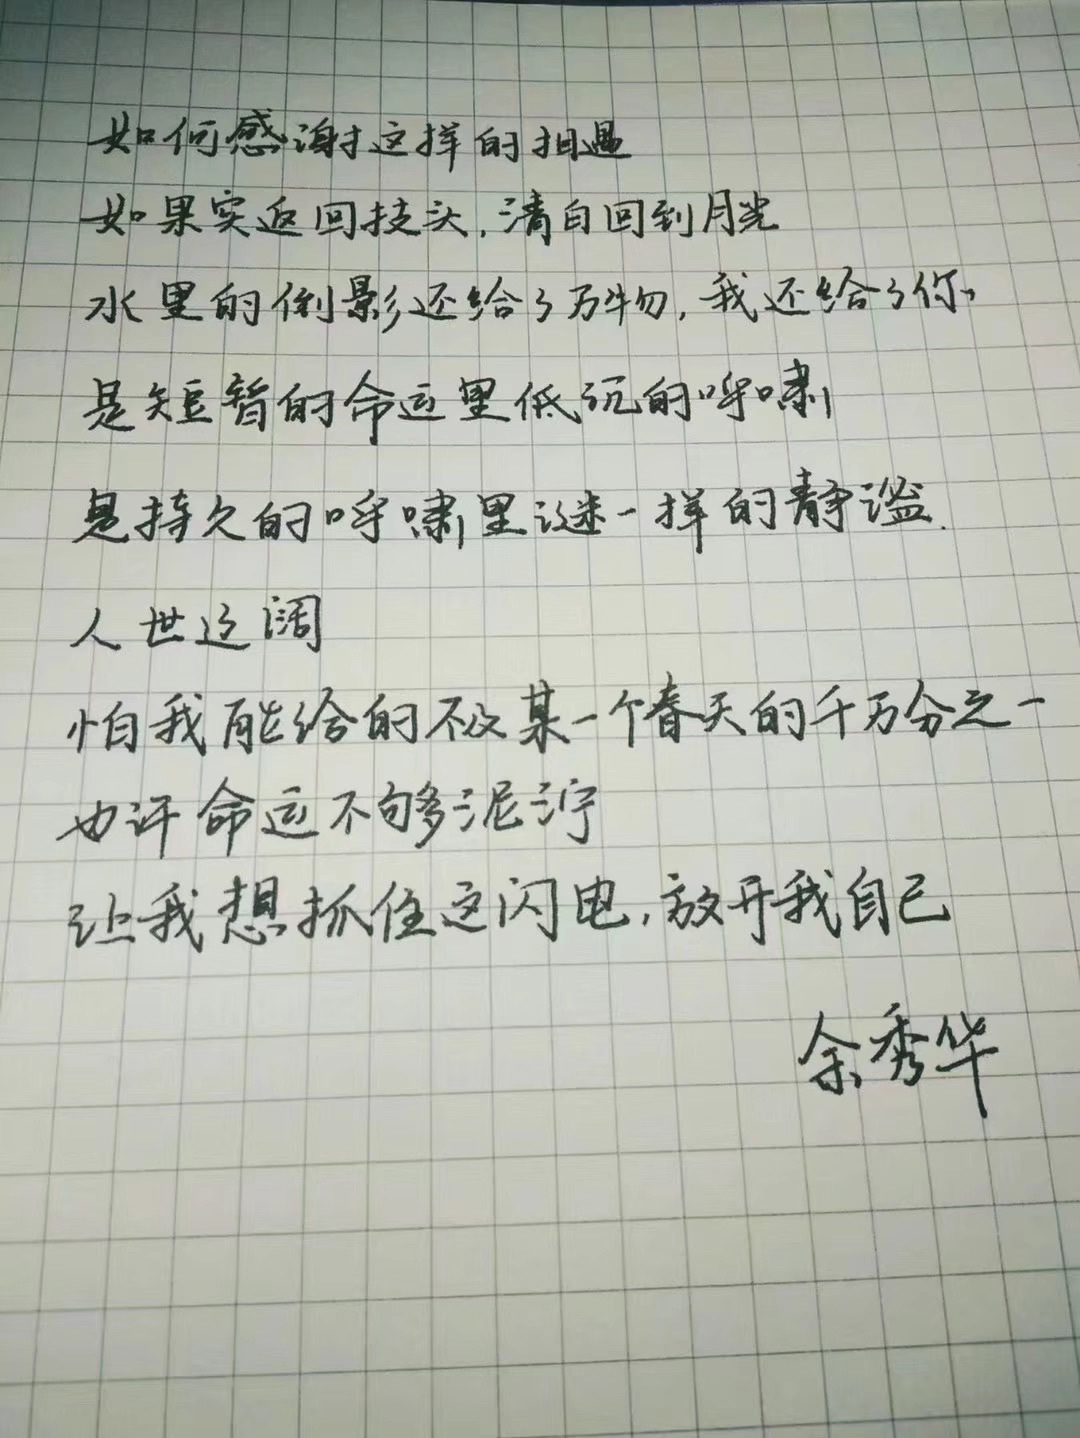 如何感谢这样的相遇
如果实返回枝头,清白回到月光
水里的倒影还给了万物,我还给了你
是短暂的命运里低沉的呼啸
是持久的呼啸里谜一样的静谧.
人世辽阔
怕我能给的不及某一个春天的千万分之一
也许命运不够泥泞
让我想抓住这闪电,放开我自己
余秀华